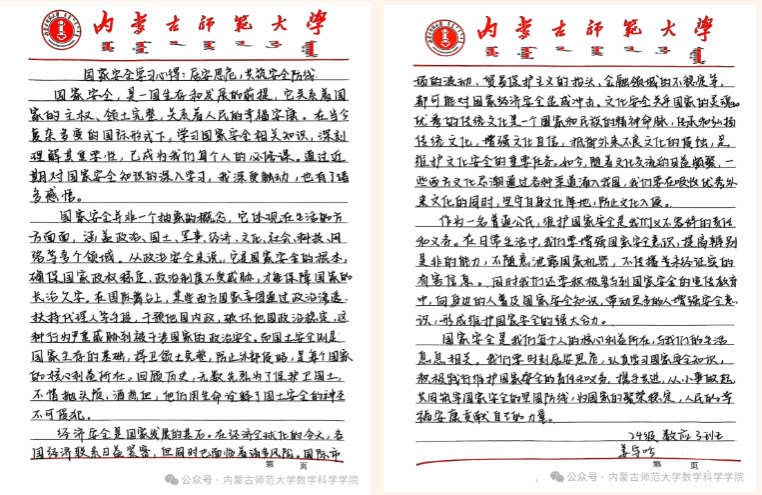 内蒙古师范大学
国家安全学习心得：居安思危，共筑安全防线
国家安全，是一国生存和发展的前提，它关系着国
家的主权、领土完整，关系着人民的幸福安康。在当今
复杂多变的国际形式下，学习国家安全相关知识，深刻
理解其重要性，已成为我们每个人的必修课。通过近
期对国家安全知识的深入学习，我深受触动，也有了诸
多感悟。
国家安全并非一个抽象的概念，它体现在生活的方
方面面，涵盖政治、国土、军事、经济、文化、社会、科技、网
络等多个领域。从政治安全来说，它是国家安全的根本，
确保国家政权稳定、政治制度不受威胁，才能保障国家的
长治久安。在国际舞台上，某些西方国家妄图通过政治渗透、
扶持代理人等手段，干预他国内政，破坏他国政治稳定，这
种行为严重威胁到被干涉国家的政治安全。而国土安全则是
国家生存的基础，捍卫领土完整，防止外部侵略，是每个国家
的核心利益所在。回顾历史，无数先烈为了保护卫国土，
不惜抛头颅、洒热血，他们用生命诠释了国土安全的神圣
不可侵犯。
经济安全是国家发展的基石。在经济全球化的今天，各
国经济联系日益紧密，但同时也面临着诸多风险。国际市
第 页
公众号 · 内蒙古师范大学数学科学学院
内蒙古师范大学
场的波动、贸易保护主义的抬头、金融领域的不稳定等，
都可能对国家经济安全造成冲击。文化安全关乎国家的灵魂。
优秀的传统文化是一个国家和民族的精神命脉，传承和弘扬
传统文化，增强文化自信，抵御外来不良文化的侵蚀，是
维护文化安全的重要任务。如今，随着文化交流的日益频繁，一
些西方文化思潮通过各种渠道涌入我国，我们要在吸收优秀外
来文化的同时，坚守自身文化阵地，防止文化入侵。
作为一名普通公民，维护国家安全是我们义不容辞的责任
和义务。在日常生活中，我们要增强国家安全意识，提高辨别
是非的能力，不随意泄露国家机密，不传播未经证实的
有害信息。同时我们还要积极参与到国家安全的宣传教育
中，向身边的人普及国家安全知识，带动更多的人增强安全意
识，形成维护国家安全的强大合力。
国家安全是我们每个人的核心利益所在，与我们的生活
息息相关。我们要时刻居安思危，认真学习国家安全知识，
积极践行维护国家安全的责任和义务，携手共进，从小事做起，
共同筑牢国家安全的坚固防线，为国家的繁荣稳定，人民的幸
福安康贡献自己的力量。
24级 数应
第 页
公众号 · 内蒙古师范大学数学科学学院